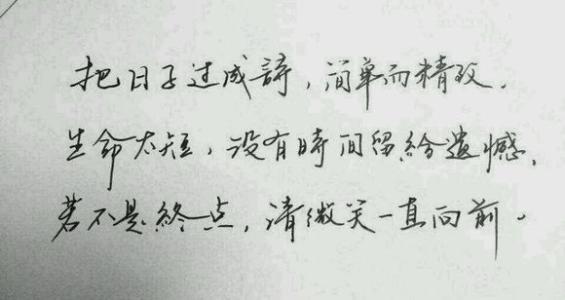 把日子过成詩，简单而精致。
生命太短，没有時间留給遺憾，
若不是終点，请微笑一直向前。